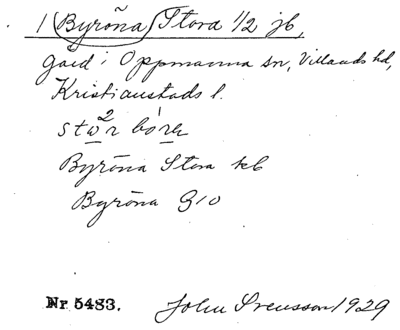 1 Byröna Stora 1/2 jb,
gård i Oppmanna sn, Villands hd,
Kristianstads l.
Byröna Stora kb
Byröna G10
Nr. 5483. John Svensson 1929